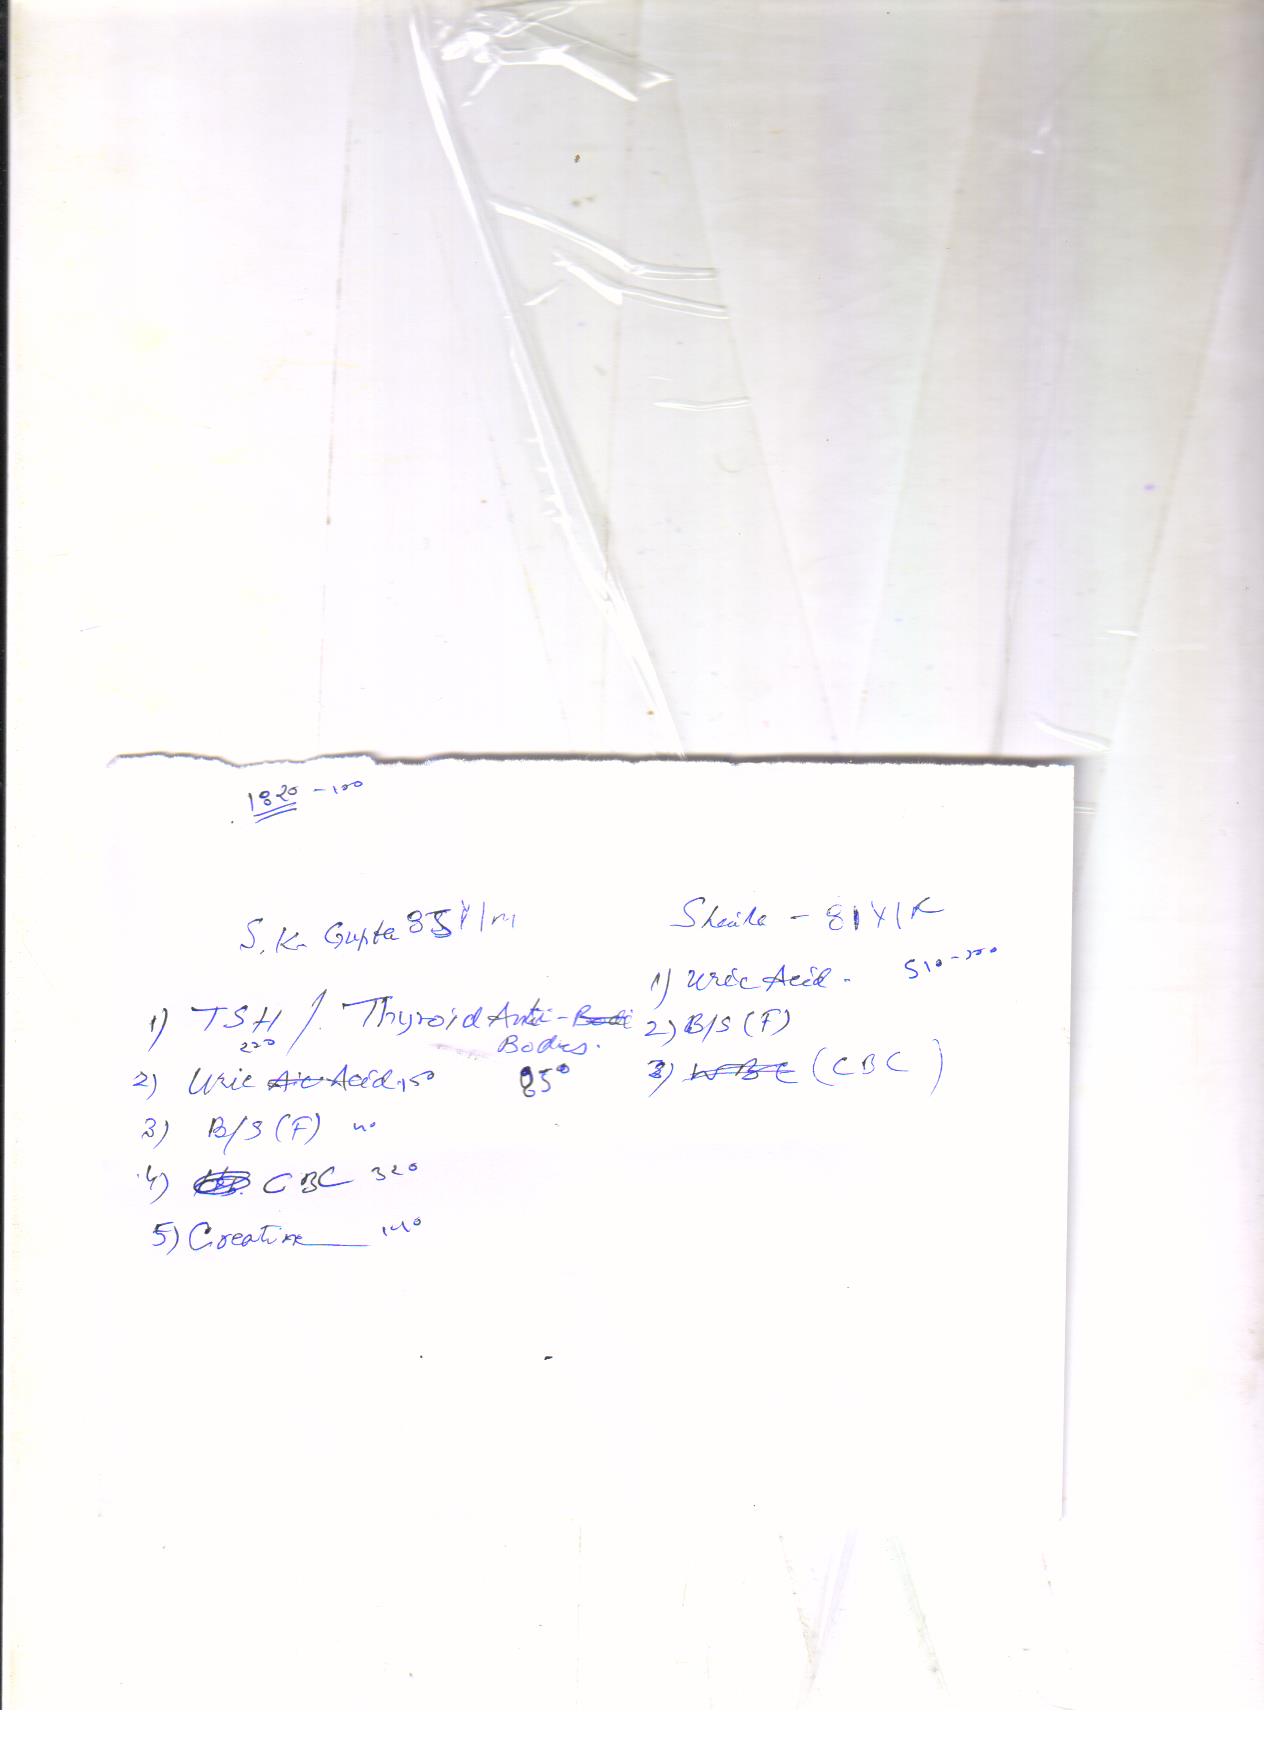 1820 - 100
S. K. Gupta 85 Y/M
1) TSH / Thyroid Anti-Bodi
220 Bodies.
2) Uric Aic Acid 150 850
3) B/S (F) 40
4) CBC 320
5) Creatine 140
Sheila - 81 Y/F
1) Uric Acid - 510-100
2) B/S (F)
3) WBC (CBC)